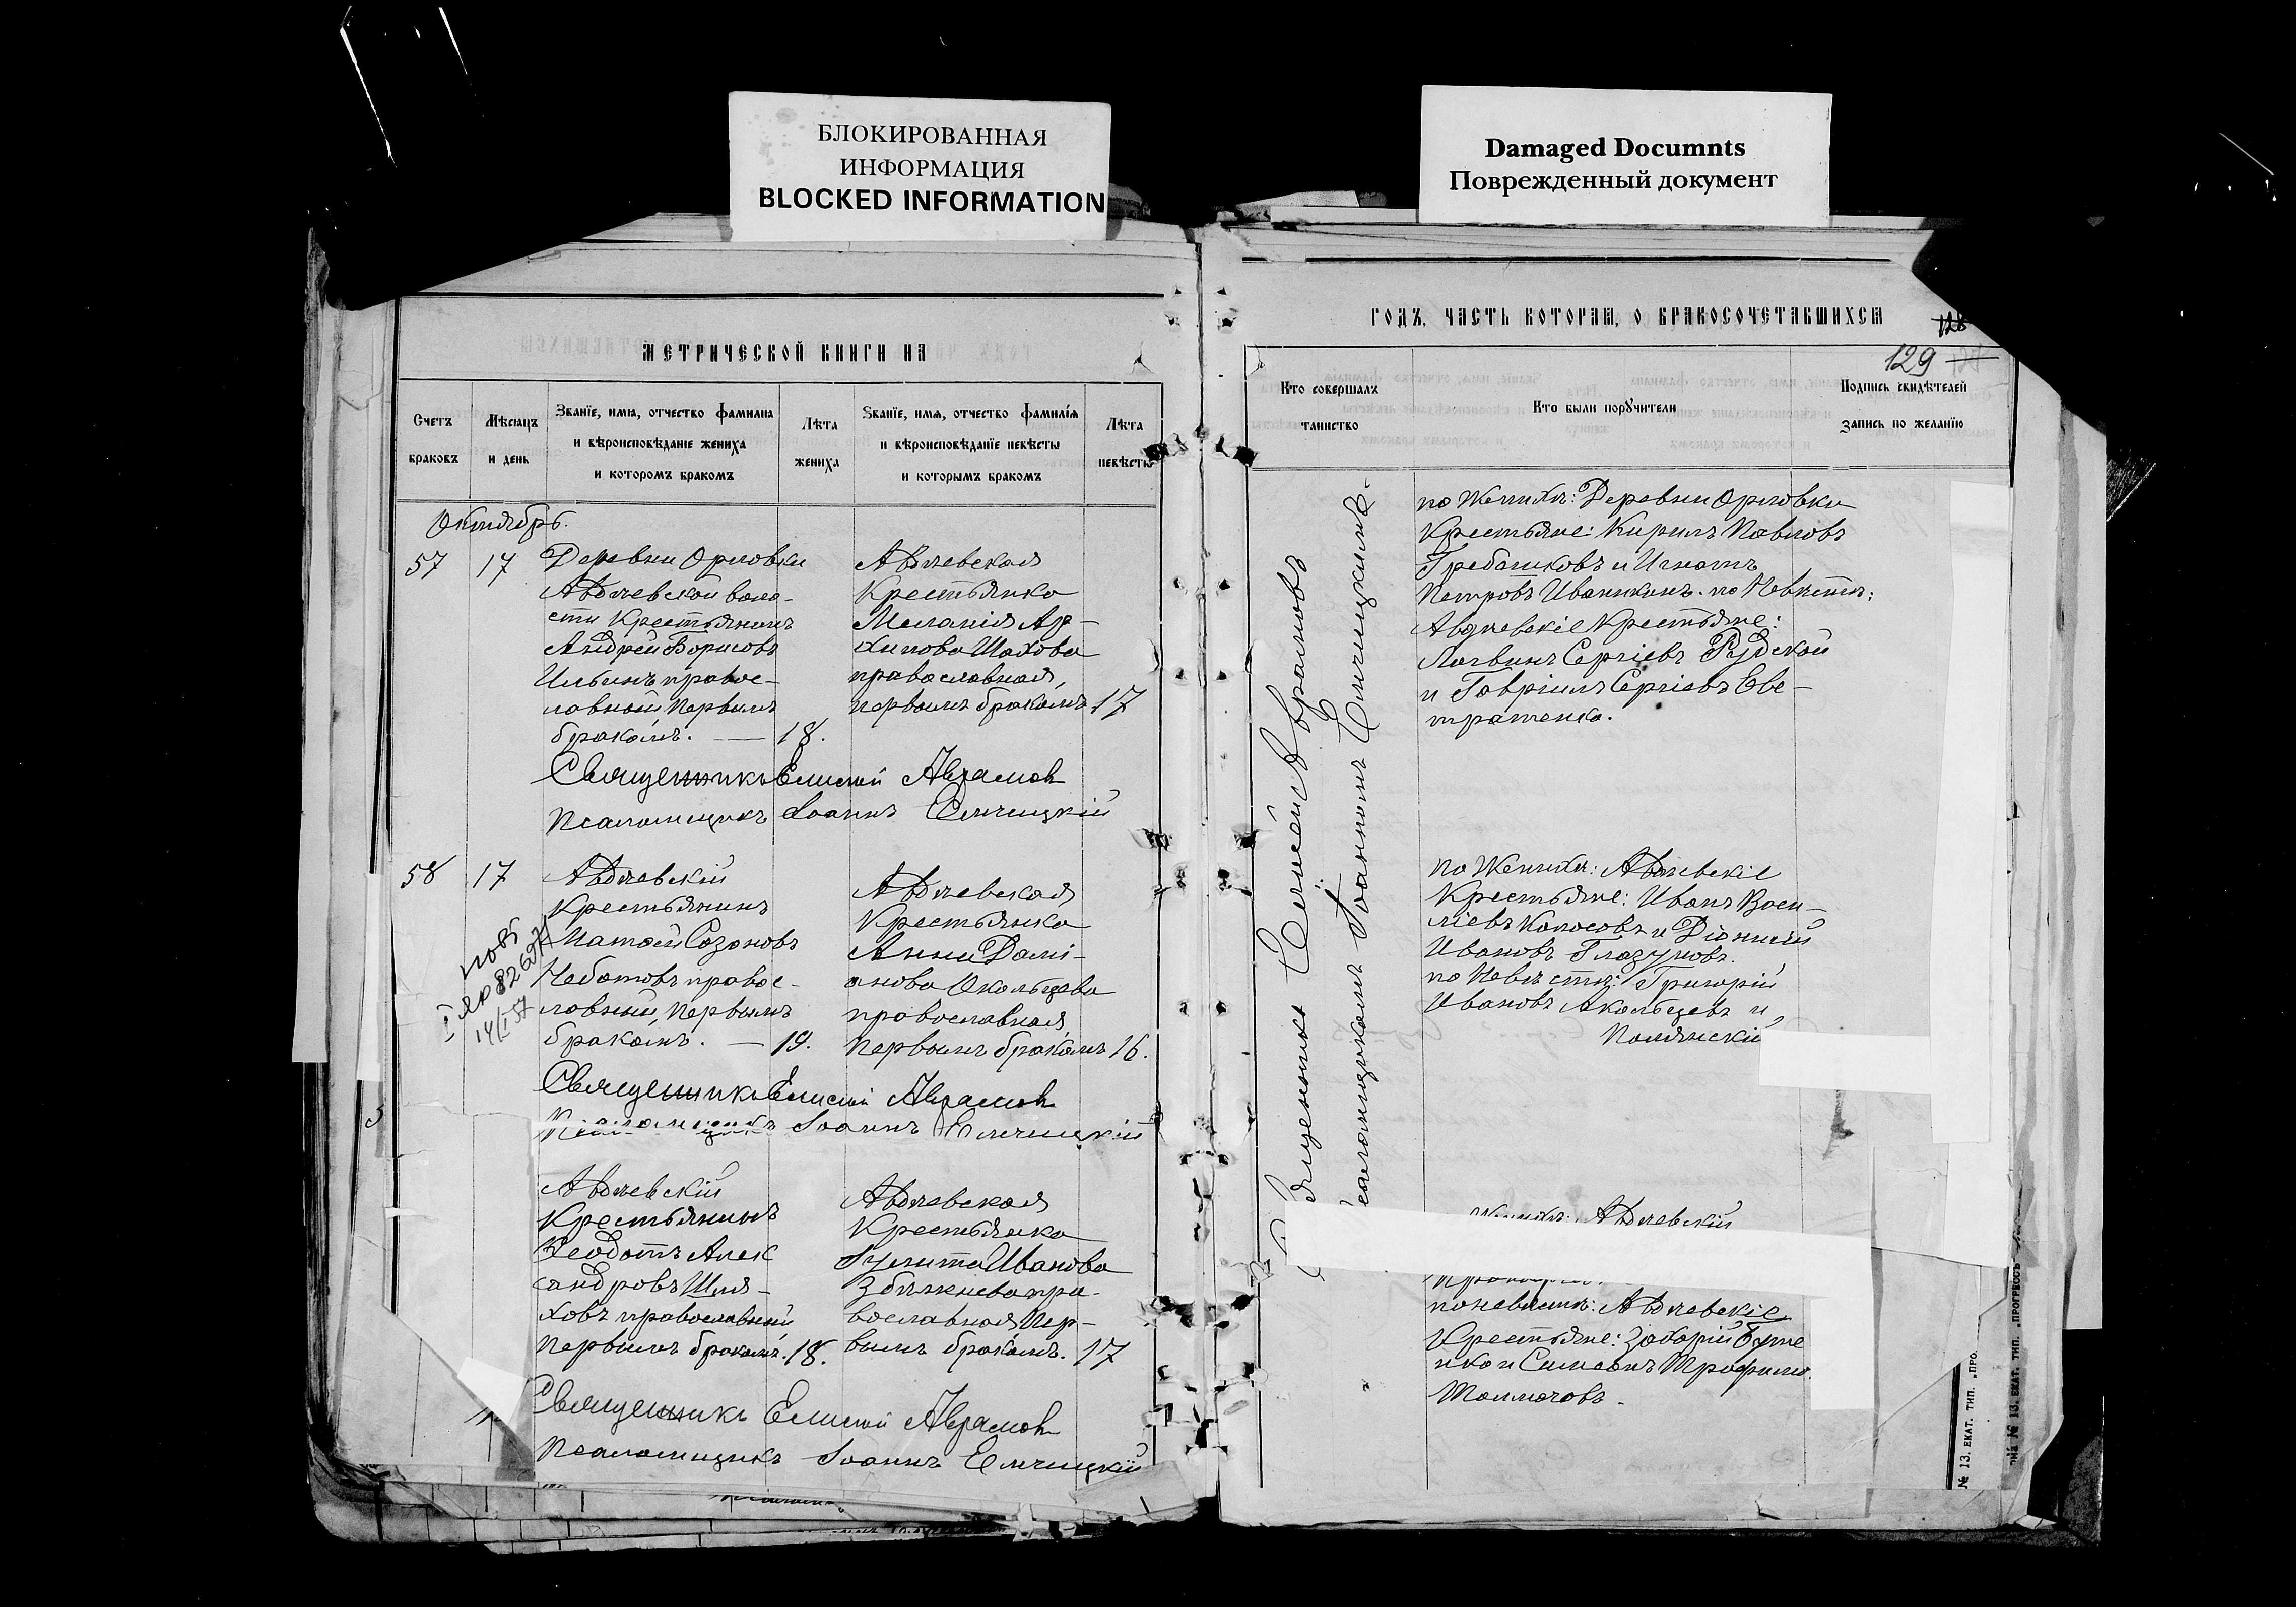 БЛОКИРОВАННАЯ
ИНФОРМАЦИЯ
BLOCKED INFORMATION
Damaged Documnts
Поврежденный документ
МЕТРИЧЕСКОЙ КНИГИ НА
Счетъ
браковъ
Мѣсяцъ
и день
Званїе, имя, отчество фамилиа
и вѣроисповѣданіе жениха
и которомъ бракомъ
Лѣта
жениха
Званїе, имя, отчество фамилія
и вѣроисповѣданїе невѣсты
и которымъ бракомъ
Лѣта
невѣсты
Октябрь.
57
17
Деревни Орловки
Авдѣевской воло-
сти Крестьянинъ
Андрей Борисовъ
Ильинъ правос-
лавный первымъ
бракомъ. — 18.
Авдѣевская
Крестьянка
Меланія Ар-
хипова Шахова
православная,
первымъ бракомъ 17
Священникъ Елисей Аврамовъ
Псаломщикъ Іоаннъ Емчицкій
58
17
Авдѣевскій
Крестьянинъ
Созоновъ
Чеботовъ правос-
лавный, первымъ
бракомъ. — 19.
Авдѣевская
Крестьянка
Анна Дамі-
анова Окольцева
православная
первымъ бракомъ 16.
Священникъ Елисей Аврамовъ
Псаломщикъ Іоаннъ Емчицкій
Авдѣевскій
Крестьянинъ
Ѳеодотъ Алек
сандровъ Шля-
ховъ православный
первымъ бракомъ. 18.
Авдѣевская
Крестьянка
Іулита Иванова
пра-
вославная пер-
вымъ бракомъ. 17
Священникъ Елисей Аврамовъ
Псаломщикъ Іоаннъ Емчицкій
ГОДЪ, ЧАСТЬ КОТОРАЯ, О БРАКОСОЧЕТАВШИХСЯ
128
129
Кто совершалъ
таинство
Кто были порꙋчители
Подпись свидѣтелей
запись по желанїю
Священникъ Елисей Аврамовъ
Іоанномъ Емчицкимъ.
по Женихѣ: Деревни Орловки
Крестьяне: Кирилъ Павловъ
Гребенковъ и Игнатъ
Петровъ Иваникинъ. по Невѣстѣ:
Авдѣевскіе Крестьяне:
Логвинъ Сергіевъ Рудской
и Гавріилъ Сергіевъ Еве-
тратенко.
по Женихѣ: Авдѣевскіе
Крестьяне: Иванъ Васи-
ліевъ Колосовъ и Діонисій
Ивановъ Глазуновъ.
по Невѣстѣ: Григорій
Ивановъ Акольцевъ и
Полянскій
Женихѣ: Авдѣевскій
по невѣстѣ: Авдѣевскіе
Крестьяне: Захарій
нко и Симеонъ Трофимо
Толмачовъ.
№ 13. ЕКАТ. ТИП. „ПРО.
№ 13. ЕКАТ. ТИП. „ПРОГРЕССЪ